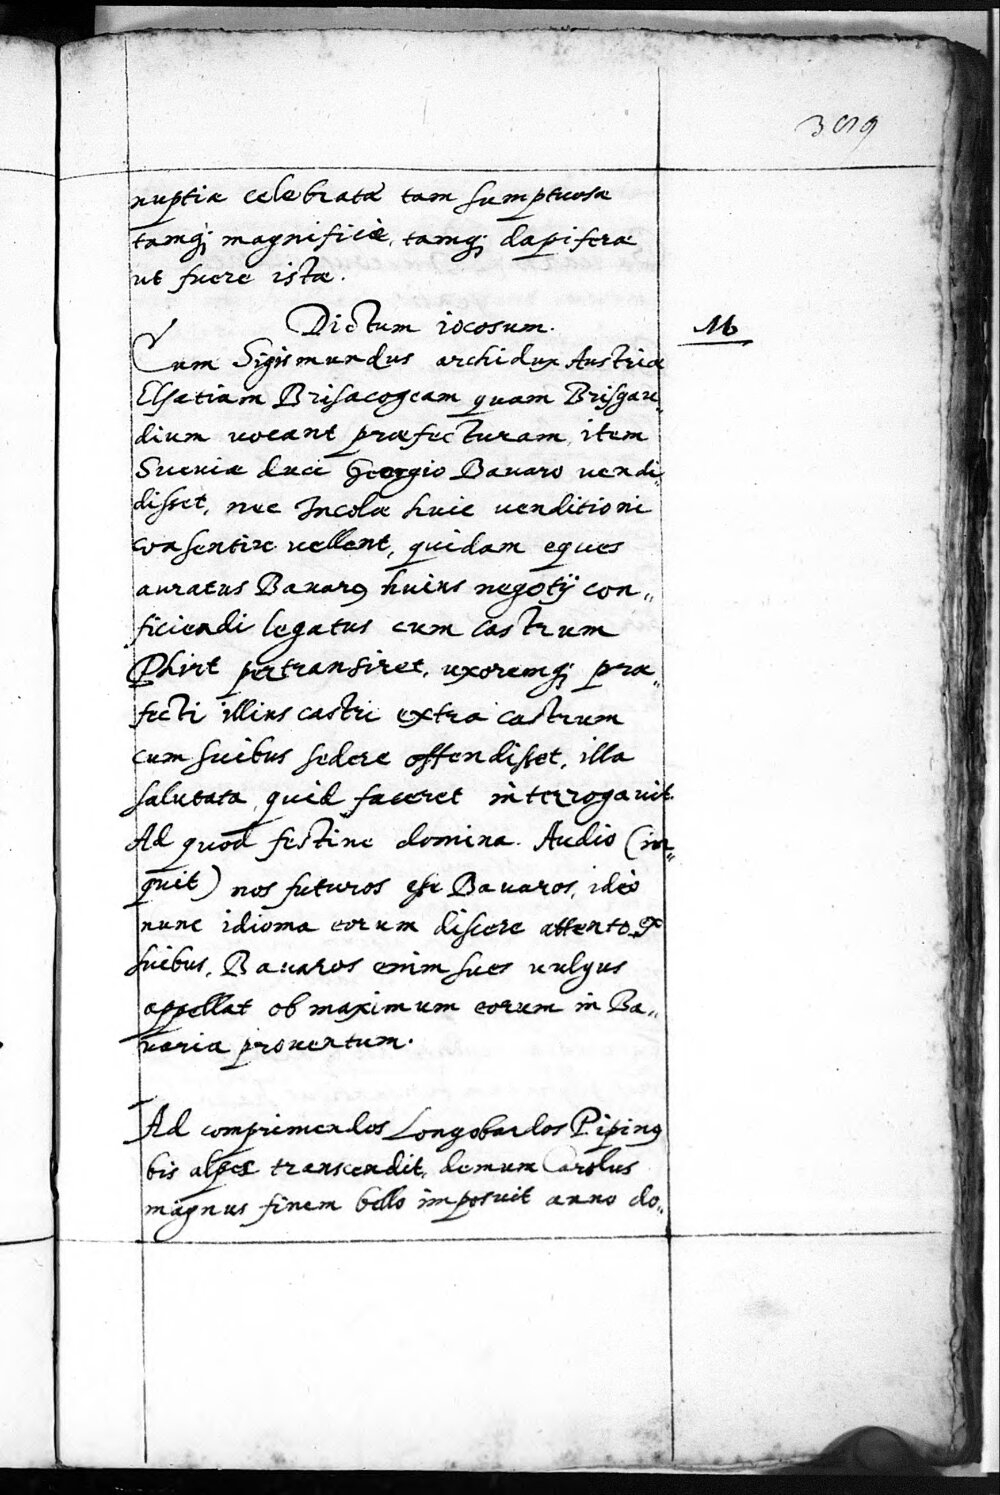 nuptiæ celebratæ tam sumptuosæ
tamq; magnificè, tamq; dapiferæ
ut fuere istæ.
Dictum iocosum.
M
Cum Sigismundus archidux Austriæ
Elsatiam Brisacogeam quam Brisgau„
dium uocant præfecturam, item
Sueuiæ duci Georgio Bauaro uendi„
disset, nec Incolæ huic uenditioni
consentire uellent, quidam eques
auratus Bauarꝰ huius negotij con„
ficiendi legatus cum castrum
Phirt pertransiret, uxoremq; præ„
fecti illius castri extra castrum
cum suibus sedere offendisset, illa
salutata, quid faceret interrogauit.
Ad quod festine domina. Audio (in„
quit) nos futuros esse Bauaros, ideo
nunc idioma eorum discere attento ex
suibus, Bauaros enim sues uulgus
appellat ob maximum eorum in Ba„
uaria prouentum.
Ad comprimendos Longobardos Pipinꝰ
bis alpes transcendit, demum Carolus
magnus finem bello imposuit anno do„